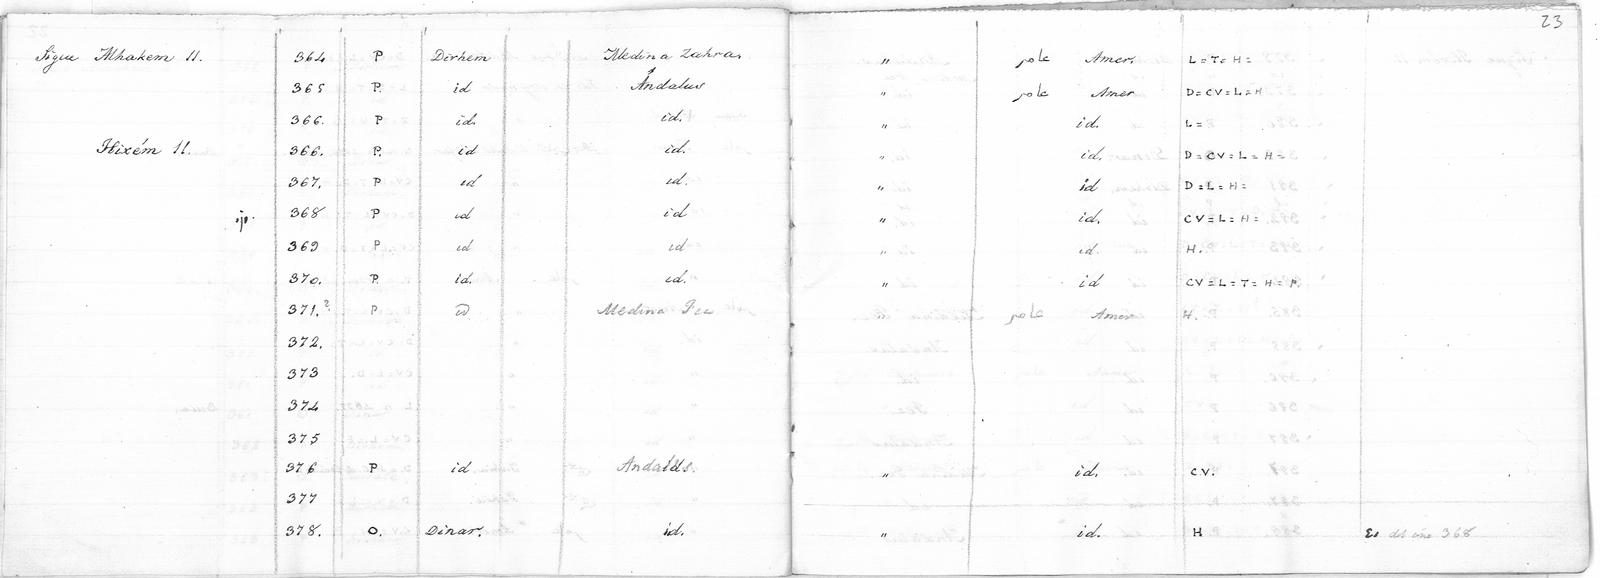 23
Sigue Alhakem II. 364 P Dirhem Medina Zahra. " عامر Amer. L=T=H=
365 P. id Andalus " عامر Amer D=CV=L=H
366. P id. id. " id. L=
Hixém II. 366. P. id id. " id. D=CV=L=H=
367. P id id. " id D=L=H=
ojo. 368 P id id " id. CV=L=H=
369 P id id " id. H.
370. P. id. id. " id CV=L=T=H=P.
371.? P id Medina Fez " عامر Amer H.
372.
373
374
375
376 P id. Andalus. " id. CV.
377
378. O. Dinar. id. " id. H Es del año 368